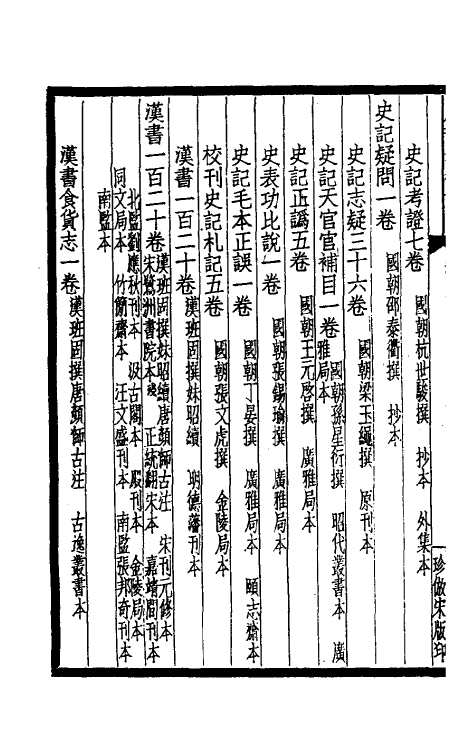 史記考證七卷　國朝杭世駿撰　抄本　外集本
史記疑問一卷　國朝邵泰衢撰　抄本
史記志疑三十六卷　國朝梁玉繩撰　原刊本
史記天官書補目一卷　國朝孫星衍撰　昭代叢書本　廣雅局本
史記正譌五卷　國朝王元啓撰　廣雅局本
史表功比說一卷　國朝張錫瑜撰　廣雅局本
史記毛本正誤一卷　國朝丁晏撰　廣雅局本　頤志齋本
校刊史記札記五卷　國朝張文虎撰　金陵局本
漢書一百二十卷　漢班固撰妹昭續　明德藩刊本
漢書一百二十卷　漢班固撰妹昭續唐顏師古注　宋刊元修本
宋鷺洲書院本殘　正統翻宋本　嘉靖間刊本
北監劉應秋刊本　汲古閣本　殿刊本　金陵局本
同文局本　竹簡齋本　汪文盛刊本　南監張邦奇刊本
南監本
漢書食貨志一卷　漢班固撰唐顏師古注　古逸叢書本
珍倣宋版印